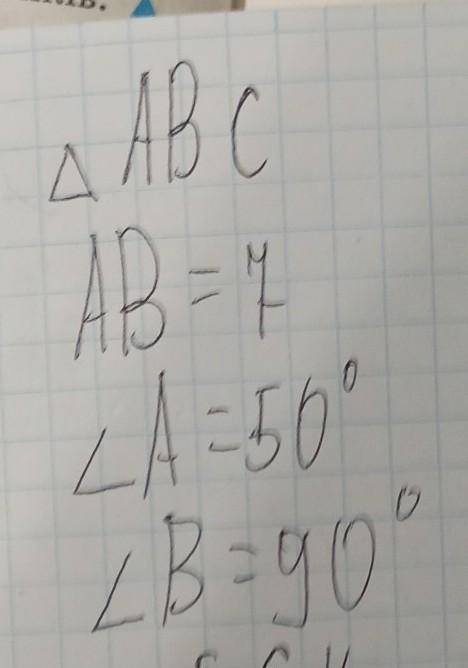 △ABC
AB=7
∠A=50°
∠B=90°